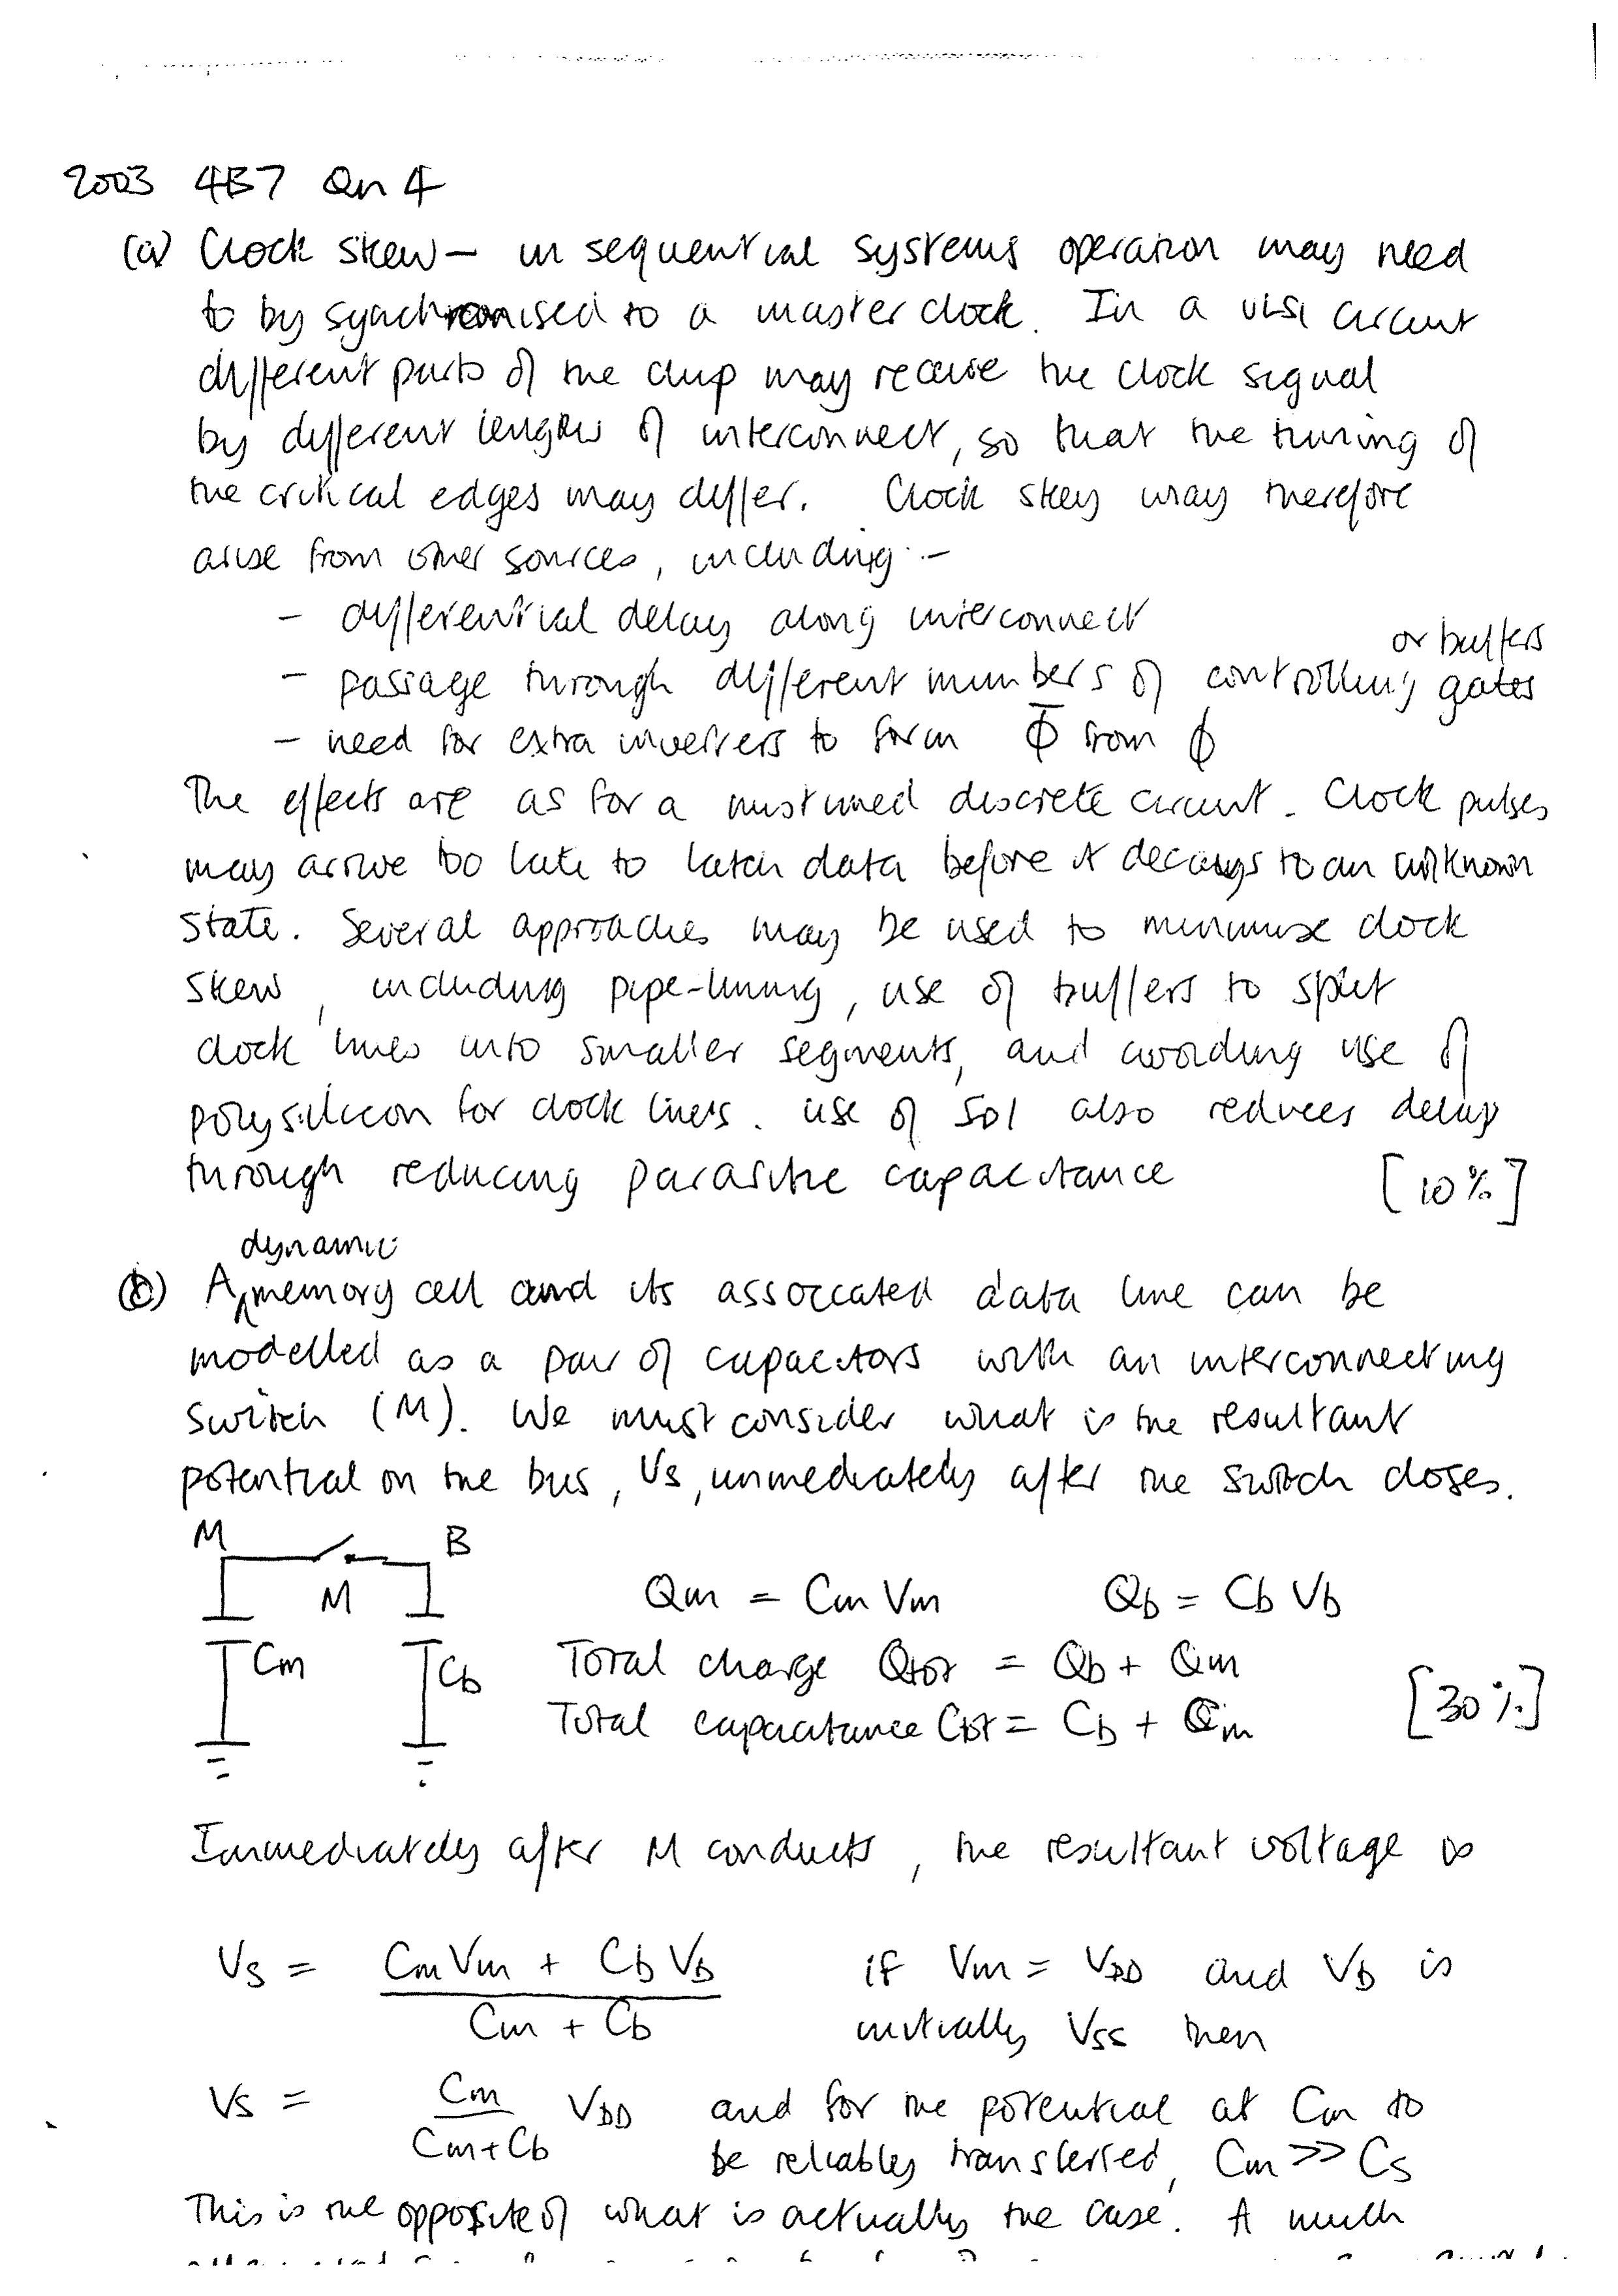 2003 4B7 Qn 4
(a) Clock skew – in sequential systems operation may need
to by synchronised to a master clock. In a VLSI circuit
different parts of the chip may receive the clock signal
by different lengths of interconnect, so that the timing of
the critical edges may differ. Clock skey may therefore
arise from other sources, including :-
- differential delay along interconnect
or buffers
- passage through different numbers of controlling gates
- need for extra inverters to form Φ̅ from ϕ
The effects are as for a mistimed discrete circuit. Clock pulses
may arrive too late to latch data before it decays to an unknown
state. Several approaches may be used to minimise clock
skew, including pipe-lining, use of buffers to split
clock lines into smaller segments, and avoiding use of
polysilicon for clock lines. use of SOI also reduces delay
through reducing parasitic capacitance [10%]
dynamic
(b) A memory cell and its associated data line can be
modelled as a pair of capacitors with an interconnecting
switch (M). We must consider what is the resultant
potential on the bus, Vs, immediately after the switch closes.
M B
M
Cm Cb
Qm = Cm Vm Qb = Cb Vb
Total charge Qtot = Qb + Qm
Total capacitance Ctot = Cb + Cm [30%]
Immediately after M conducts, the resultant voltage is
Vs = (Cm Vm + Cb Vb) / (Cm + Cb) if Vm = VDD and Vb is
initially VSS then
Vs = Cm / (Cm + Cb) VDD and for the potential at Cm to
be reliably transferred, Cm >> Cs
This is the opposite of what is actually the case. A much